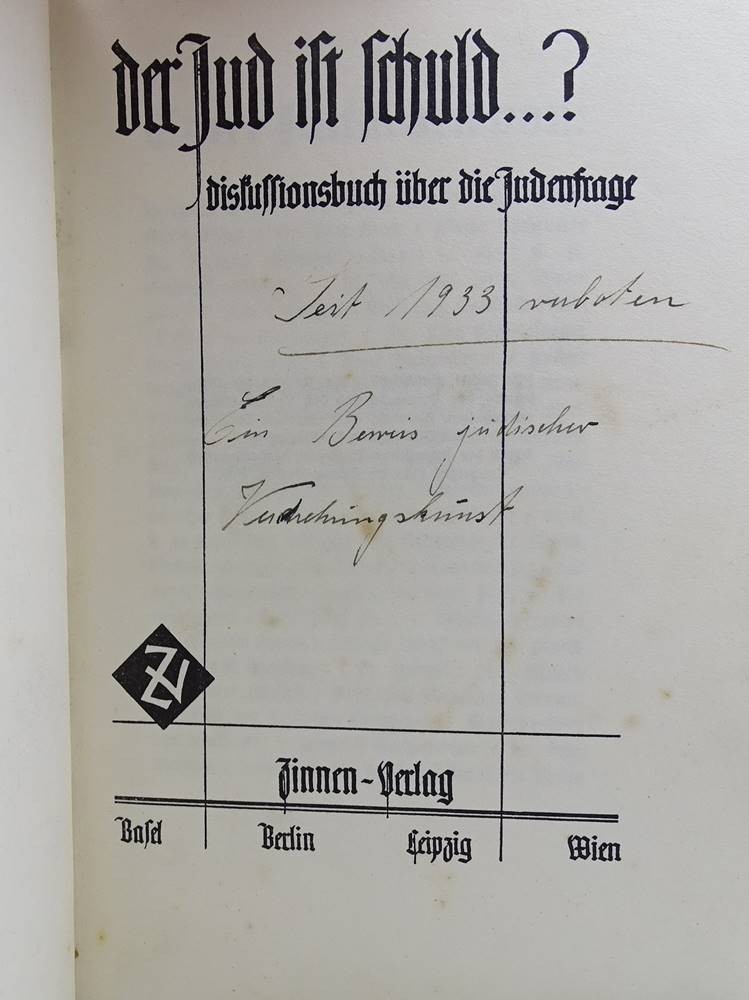 der Jud ist schuld...?
diskussionsbuch über die Judenfrage
Seit 1933 verboten
Ein Beweis jüdischer
Verdrehungskunst
ZV
Zinnen-Verlag
Basel Berlin Leipzig Wien